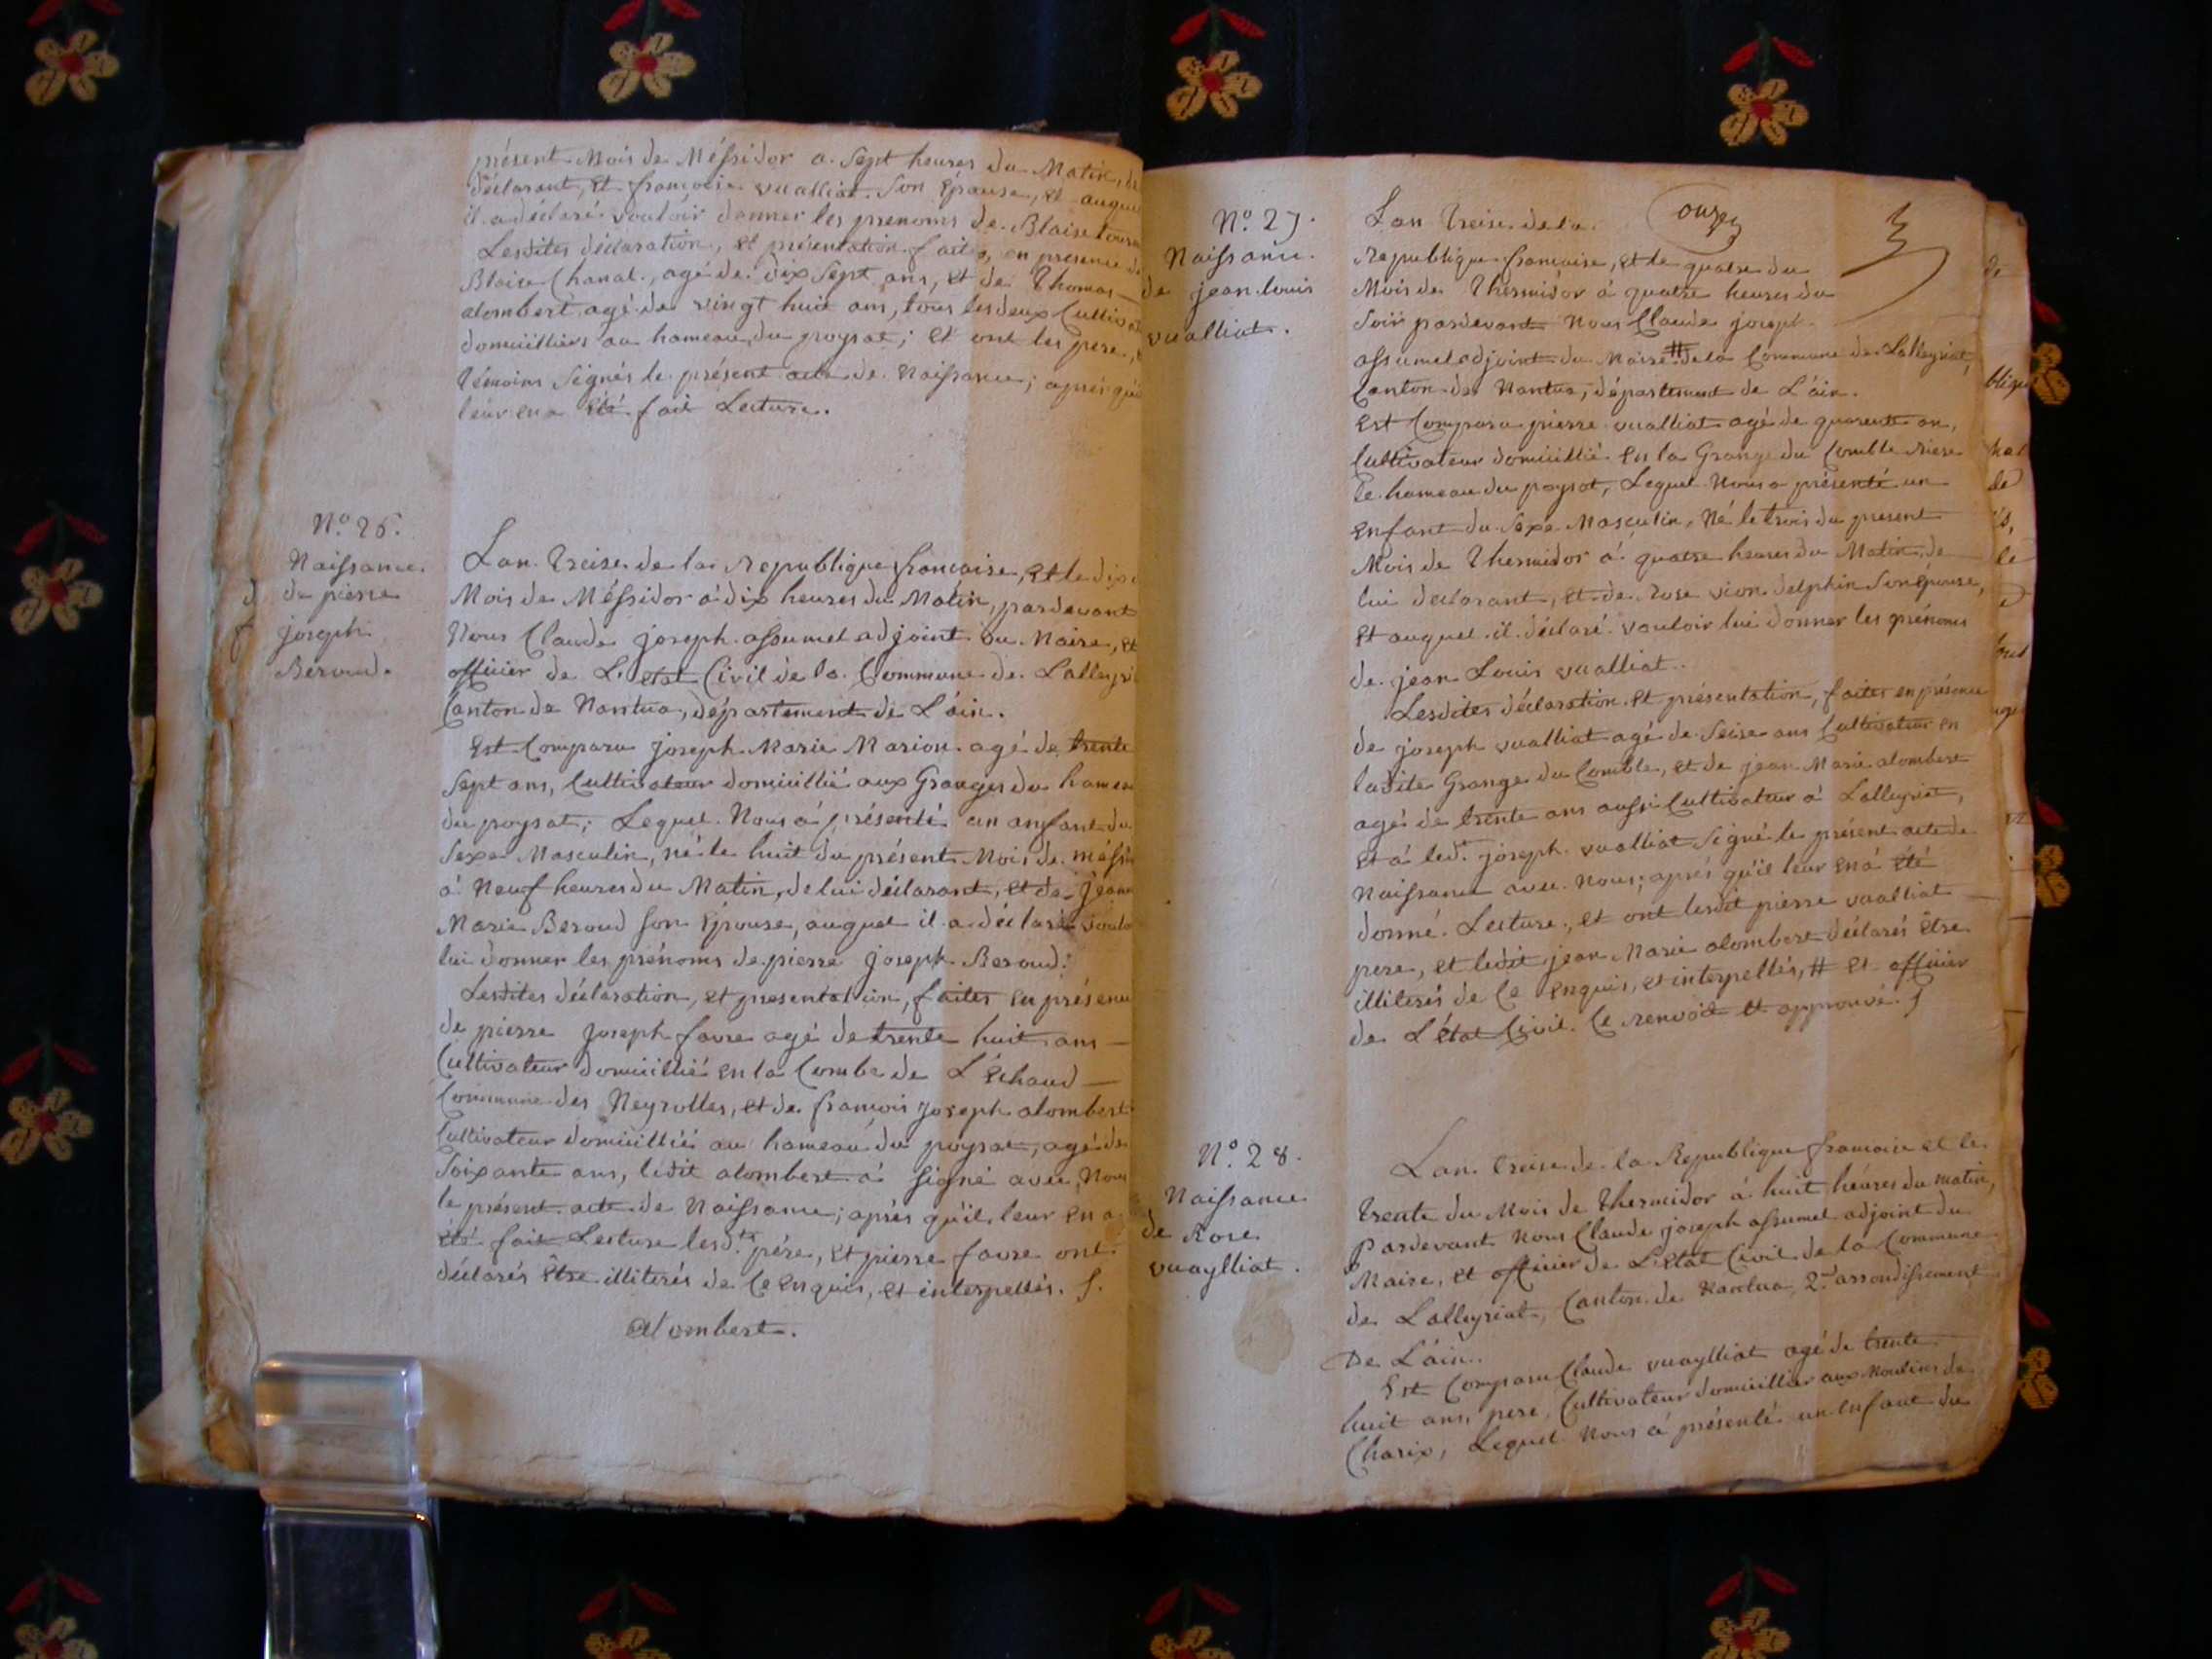 présent Mois de Méssidor a Sept heures du Matin, de
déclarant, et françoise vualliat Son Épouse, et auquel
il a déclaré vouloir donner les prenoms de Blaise
Lesdites déclaration, et présentation faites, en présence de
Blaise Chanal, agé de dix Sept ans, et de Thomas
alombert agé de vingt huit ans, tous les deux Cultiv
domicilliers au hameau du poysat; et ont les pere,
témoins Signés le présent acte de Naissance; aprés
leur en a été fait Lecture.
N.o 26.
Naissance
de pierre
joseph
Beroud.
Lan Treise de la Republique francaise, et le dix
Mois de Méssidor à dix heures du Matin, pardevant
Nous Claude joseph assumel adjoint au Maire, et
officier de L'etat Civil de la Commune de Lalleyri
Canton de Nantua, département de L'áin.
Est Comparu joseph Marie Marion agé de trente
Sept ans, Cultivateur domicillié aux Granges du hamea
du poysat; Lequel Nous á présenté un anfant du
Sexe Masculin, né le huit du présent Mois de méssi
á Neuf heures du Matin, de lui déclarant, et de jeane
Marie Beroud son Épouse, auquel il a déclaré voulo
lui donner les prénoms de pierre joseph Beroud.
Lesdites déclaration, et presentation, faites en présence
de pierre joseph favre agé de trente huit ans
Cultivateur domicillié en la Combe de L'Echaud
Commune des Neyrolles, et de francois joseph alombert
Cultivateur domicillié au hameau du poysat, agé de
Soixante ans, ledit alombert á signé avec Nous
le présent acte de Naissance; aprés qu'il leur en a
été fait Lecture lesd.ts pére, et pierre favre ont
déclarés Être illiterés de Ce enquis, et interpellés.
alombert.
N.o 27.
Naissance
de jean louis
vualliat.
onze
Lan Treise de la
Republique francaise, et le quatre du
Mois de Thermidor à quatre heures du
Soir pardevant Nous Claude joseph
assumel adjoint du Maire # de la Commune de Lalleyriat,
Canton de Nantua, département de L'áin.
Est Comparu pierre vualliat agé de quarente an,
Cultivateur domicillié en la Grange du Comble riere
Le hameau du poysat, Lequel Nous a présenté un
enfant du Sexe Masculin, Né le trois du present
Mois de Thermidor á quatre heures du Matin, de
lui declarant, et de Rose vion delphin Son épouse,
et auquel il déclaré vouloir lui donner les prénoms
de jean Louis vualliat.
Lesdites déclaration et présentation, faites en présence
de joseph vualliat agé de Seise ans Cultivateur en
ladite Grange du Comble, et de jean Marie alombert
agé de trente ans aussi Cultivateur á Lalleyriat,
et á led.t joseph vualliat Signé le présent acte de
Naissance avec Nous; aprés qu'il leur en á été
donné Lecture, et ont lesdit pierre vualliat
pere, et ledit jean Marie alombert déclarés être
illiterés de Ce enquis, et interpellés, # et officier
de L'état Civil. Ce renvoit et approuvé.
N.o 28.
Naissance
de Rose
vuaylliat.
Lan treise de la Republique francaise et le
trente du Mois de Thermidor á huit héures du matin,
Pardevant Nous Claude joseph assumel adjoint du
Maire, et officier de L'etat Civil de la Commune
de Lalleyriat, Canton de Nantua, 2.me arrondissement
De L'áin.
Est Comparu Claude vuaylliat agé de trente
huit ans, pere, Cultivateur domicillier aux Moulins de
Charix, Lequel Nous á présenté un enfant du